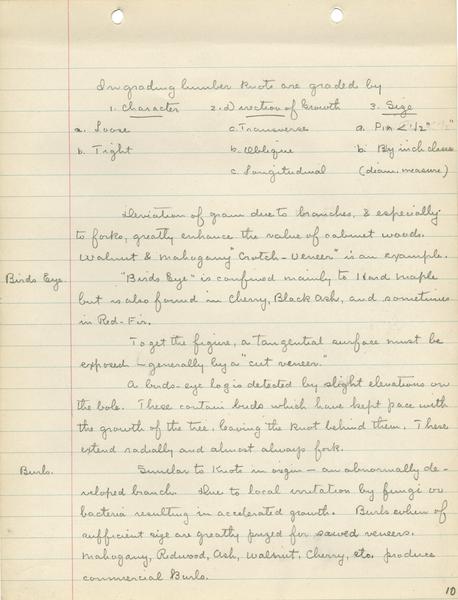 In grading lumber Knots are graded by
1. Character 2. Direction of Growth 3. Size
a. Loose c. Transverse a. Pin < 1/2"
b. Tight b. Oblique b. By inch classes
c. Longitudinal (diam. measure)
Deviation of grain due to branches, & especially
to forks, greatly enhance the value of cabinet woods.
Walnut & Mahogany "Crotch-Veneer" is an example.
Birds Eye. "Birds Eye" is confined mainly to Hard Maple
but is also found in Cherry, Black Ash, and sometimes
in Red-Fir.
To get the figure, a tangential surface must be
exposed – generally by a "cut veneer."
A birds-eye log is detected by slight elevations on
the bole. These contain buds which have kept pace with
the growth of the tree, leaving the knot behind them. These
extend radially and almost always fork.
Burls. Similar to Knots in origin – an abnormally de-
veloped branch. Due to local irritation by fungi or
bacteria resulting in accelerated growth. Burls when of
sufficient size are greatly prized for sawed veneers.
Mahogany, Redwood, Ash, Walnut, Cherry, etc. produce
commercial Burls.
10